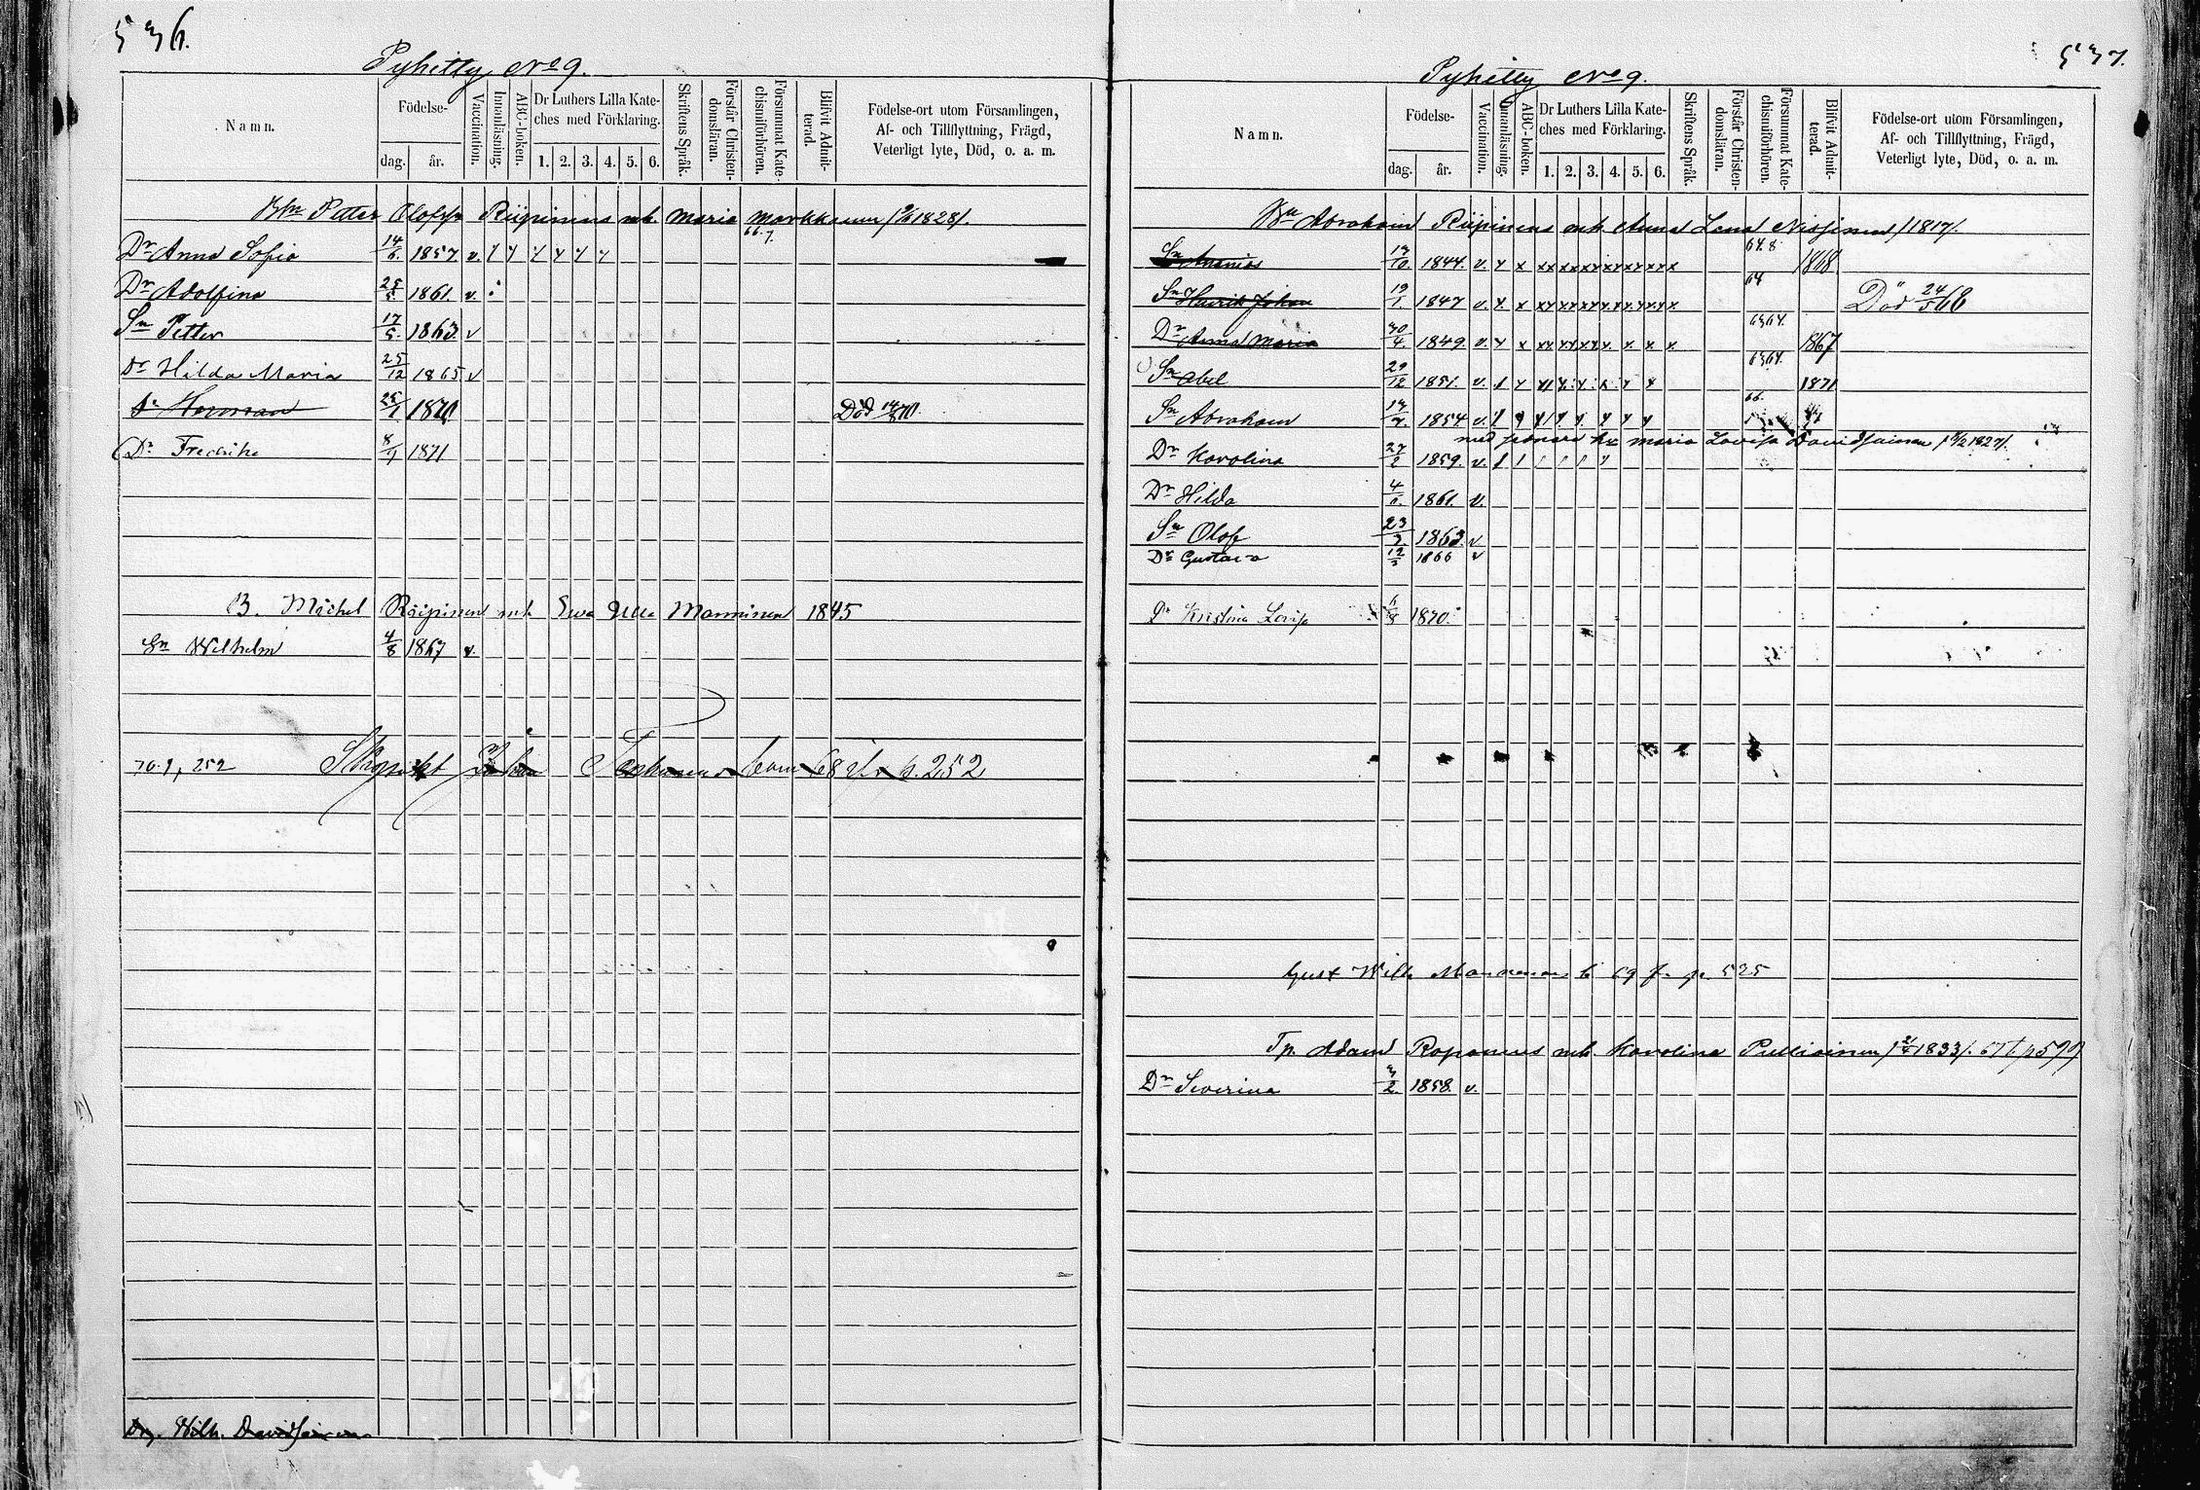 536.
Pyhitty No 9.
Namn.
Födelse-
dag. år.
Vaccination.
Innanläsning.
ABC-boken.
Dr Luthers Lilla Kate-
ches med Förklaring.
1. 2. 3. 4. 5. 6.
Skriftens Språk.
Förstår Christen-
domsläran.
Försummat Kate-
chismiförhören.
Blifvit Admit-
terad.
Födelse-ort utom Församlingen,
Af- och Tillflyttning, Frägd,
Veterligt lyte, Död, o. a. m.
Petter Olofss Riipinens enk. Maria Markkanen 1828
66.7.
Dr Anna Sofia 14/6 1857 v.
Dr Adolfina 25/5 1861. v.
Sn Petter 17/5 1863. v
Dr Hilda Maria 25/12 1865 v
Sn Herman 25/1 1870 Död 70
Dr Fredrika 8/7 1871
B. Michel Räipinens enk. Eva Ulla Manninen 1845
Sn Wilhelm 4/8 1867 v.
70.1, 252 Johan 68 p. 252
Wilh. Davidsainen
537.
Pyhitty No 9.
Namn.
Födelse-
dag. år.
Vaccination.
Innanläsning.
ABC-boken.
Dr Luthers Lilla Kate-
ches med Förklaring.
1. 2. 3. 4. 5. 6.
Skriftens Språk.
Förstår Christen-
domsläran.
Försummat Kate-
chismiförhören.
Blifvit Admit-
terad.
Födelse-ort utom Församlingen,
Af- och Tillflyttning, Frägd,
Veterligt lyte, Död, o. a. m.
Abraham Riipinens enk. Anna Lena Nissinen /1817/.
Sn Ananias 13/10 1844. v. x x xx xx xx xx xx x 1868
Sn Henrik Johan 19/1 1847 v. x. x xx xx xx xx xx x 64 Död 24/5 68
Dr Anna Maria 30/4 1849. v. x x xx xx xx x. x x 6364. 1867
Sn Abel 29/12 1851. v. 6364. 1871
Sn Abraham 1854 v. 66.
Maria Lovisa Davidsainen 1827/.
Dr Karolina 27/2 1859. v.
Dr Hilda 1861. v.
Sn Olof 23/7 1863. v
Dr Gustava 1866 v
Dr Kristina Lovisa 6/8 1870.
Gust Wilh Manninen 69 f. p. 525
Tp. Adam Roponens enk. Karolina Pulliainen 1833/.
Dr Severina 3/2 1858. v.